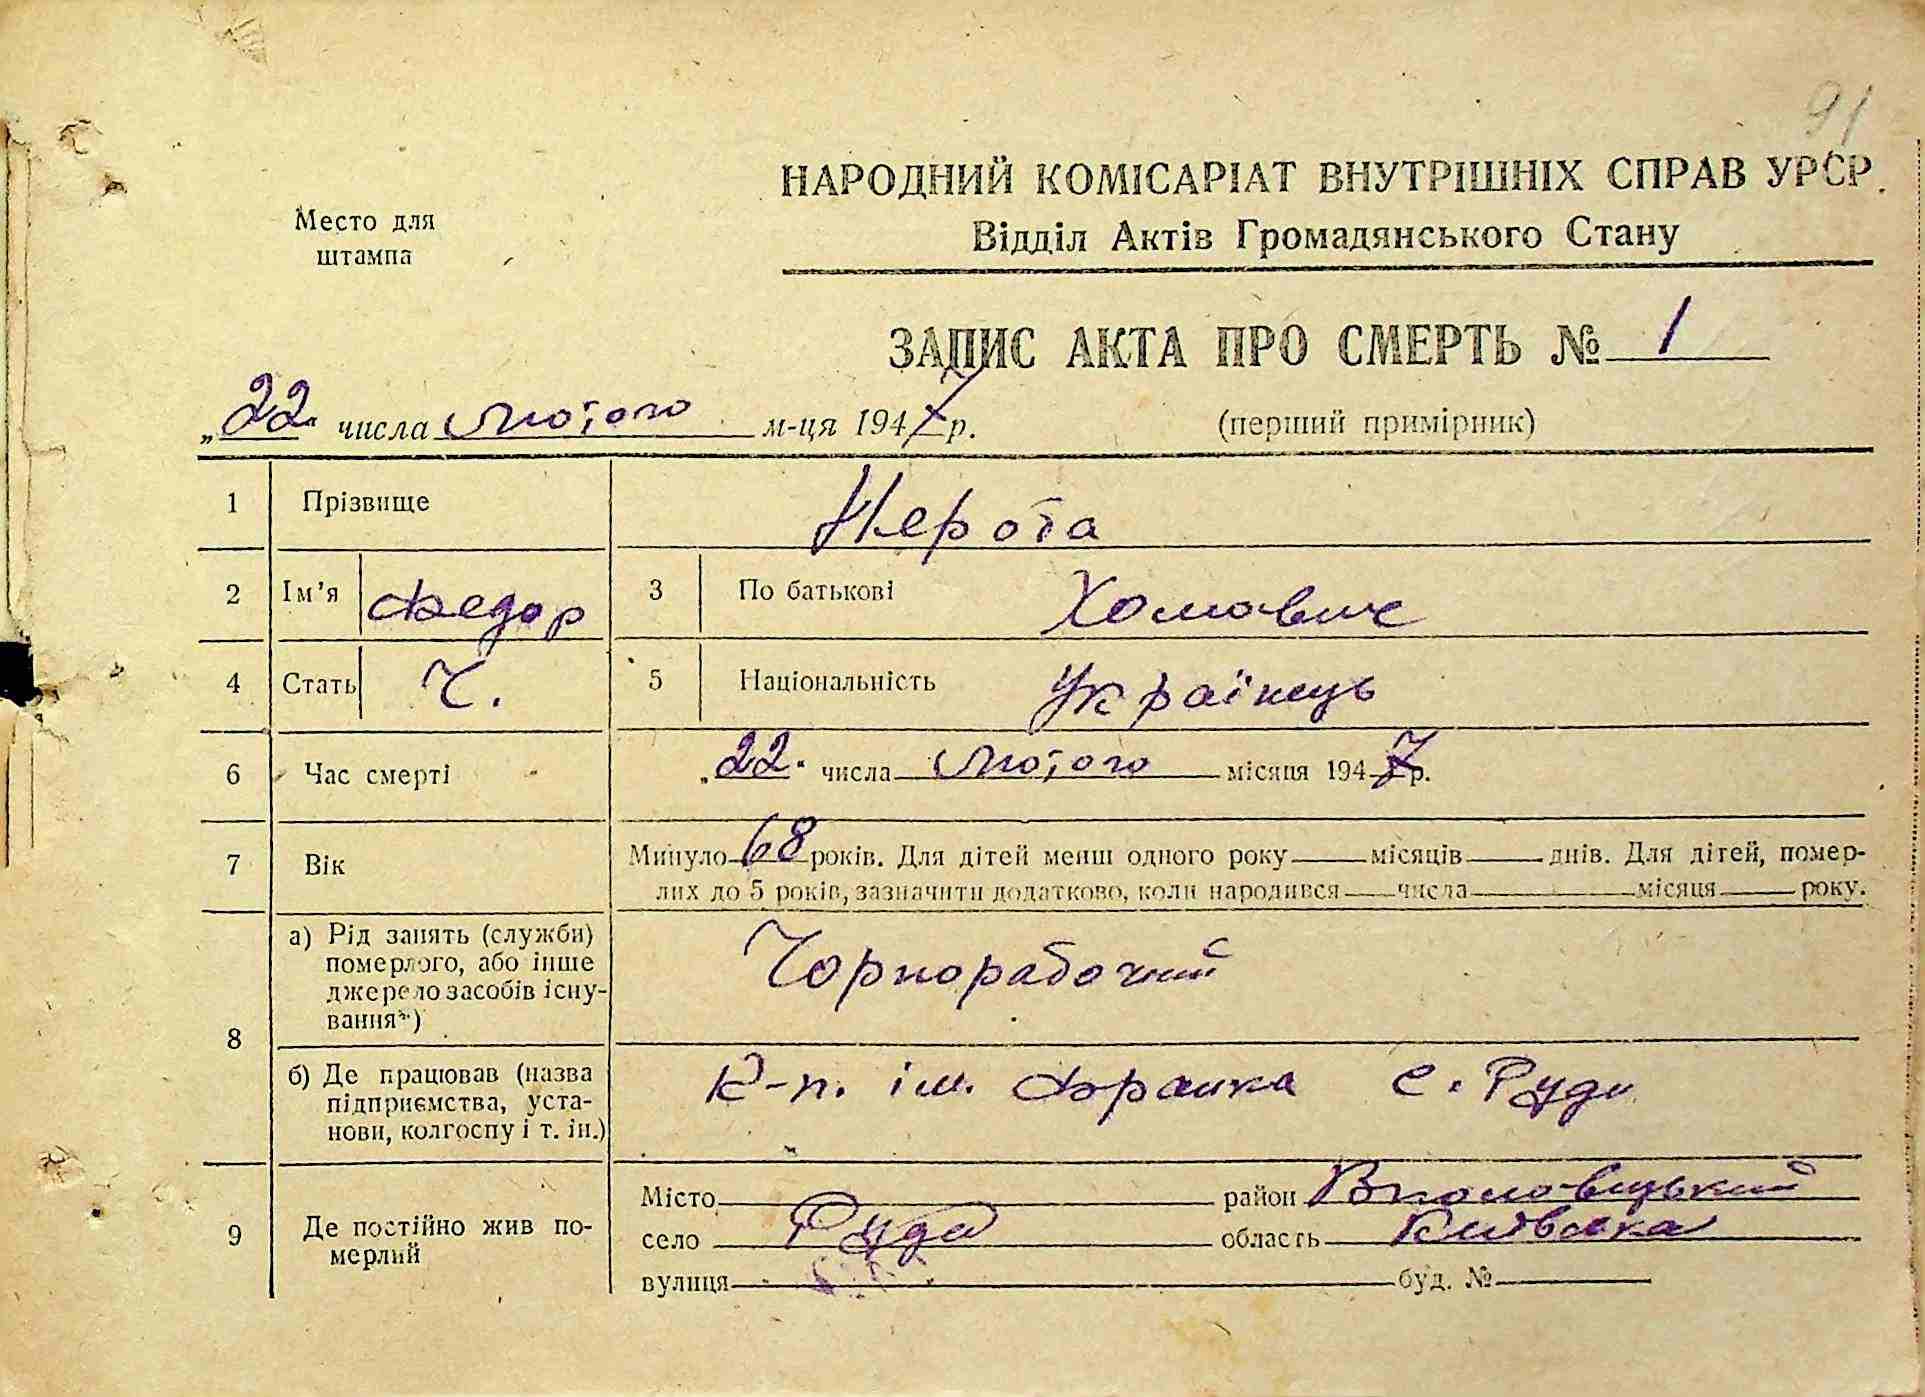 91
НАРОДНИЙ КОМІСАРІАТ ВНУТРІШНІХ СПРАВ УРСР.
Відділ Актів Громадянського Стану
Место для
штампа
ЗАПИС АКТА ПРО СМЕРТЬ № 1
„22“ числа лютого м-ця 1947 р. (перший примірник)
1 Прізвище Нерота
2 Ім'я Федор 3 По батькові Хомович
4 Стать Ч. 5 Національність Українець
6 Час смерті „22“ числа лютого місяця 1947 р.
7 Вік Минуло 68 років. Для дітей менш одного року місяців днів. Для дітей, помер-
лих до 5 років, зазначити додатково, коли народився числа місяця року.
8 а) Рід занять (служби)
померлого, або інше
джерело засобів існу-
вання*)
Чорнорабочий
б) Де працював (назва
підприємства, уста-
нови, колгоспу і т. ін.)
К-п. ім. Франка с. Руди
9 Де постійно жив по-
мерлий
Місто район
село Руда область Київська
вулиця буд. №